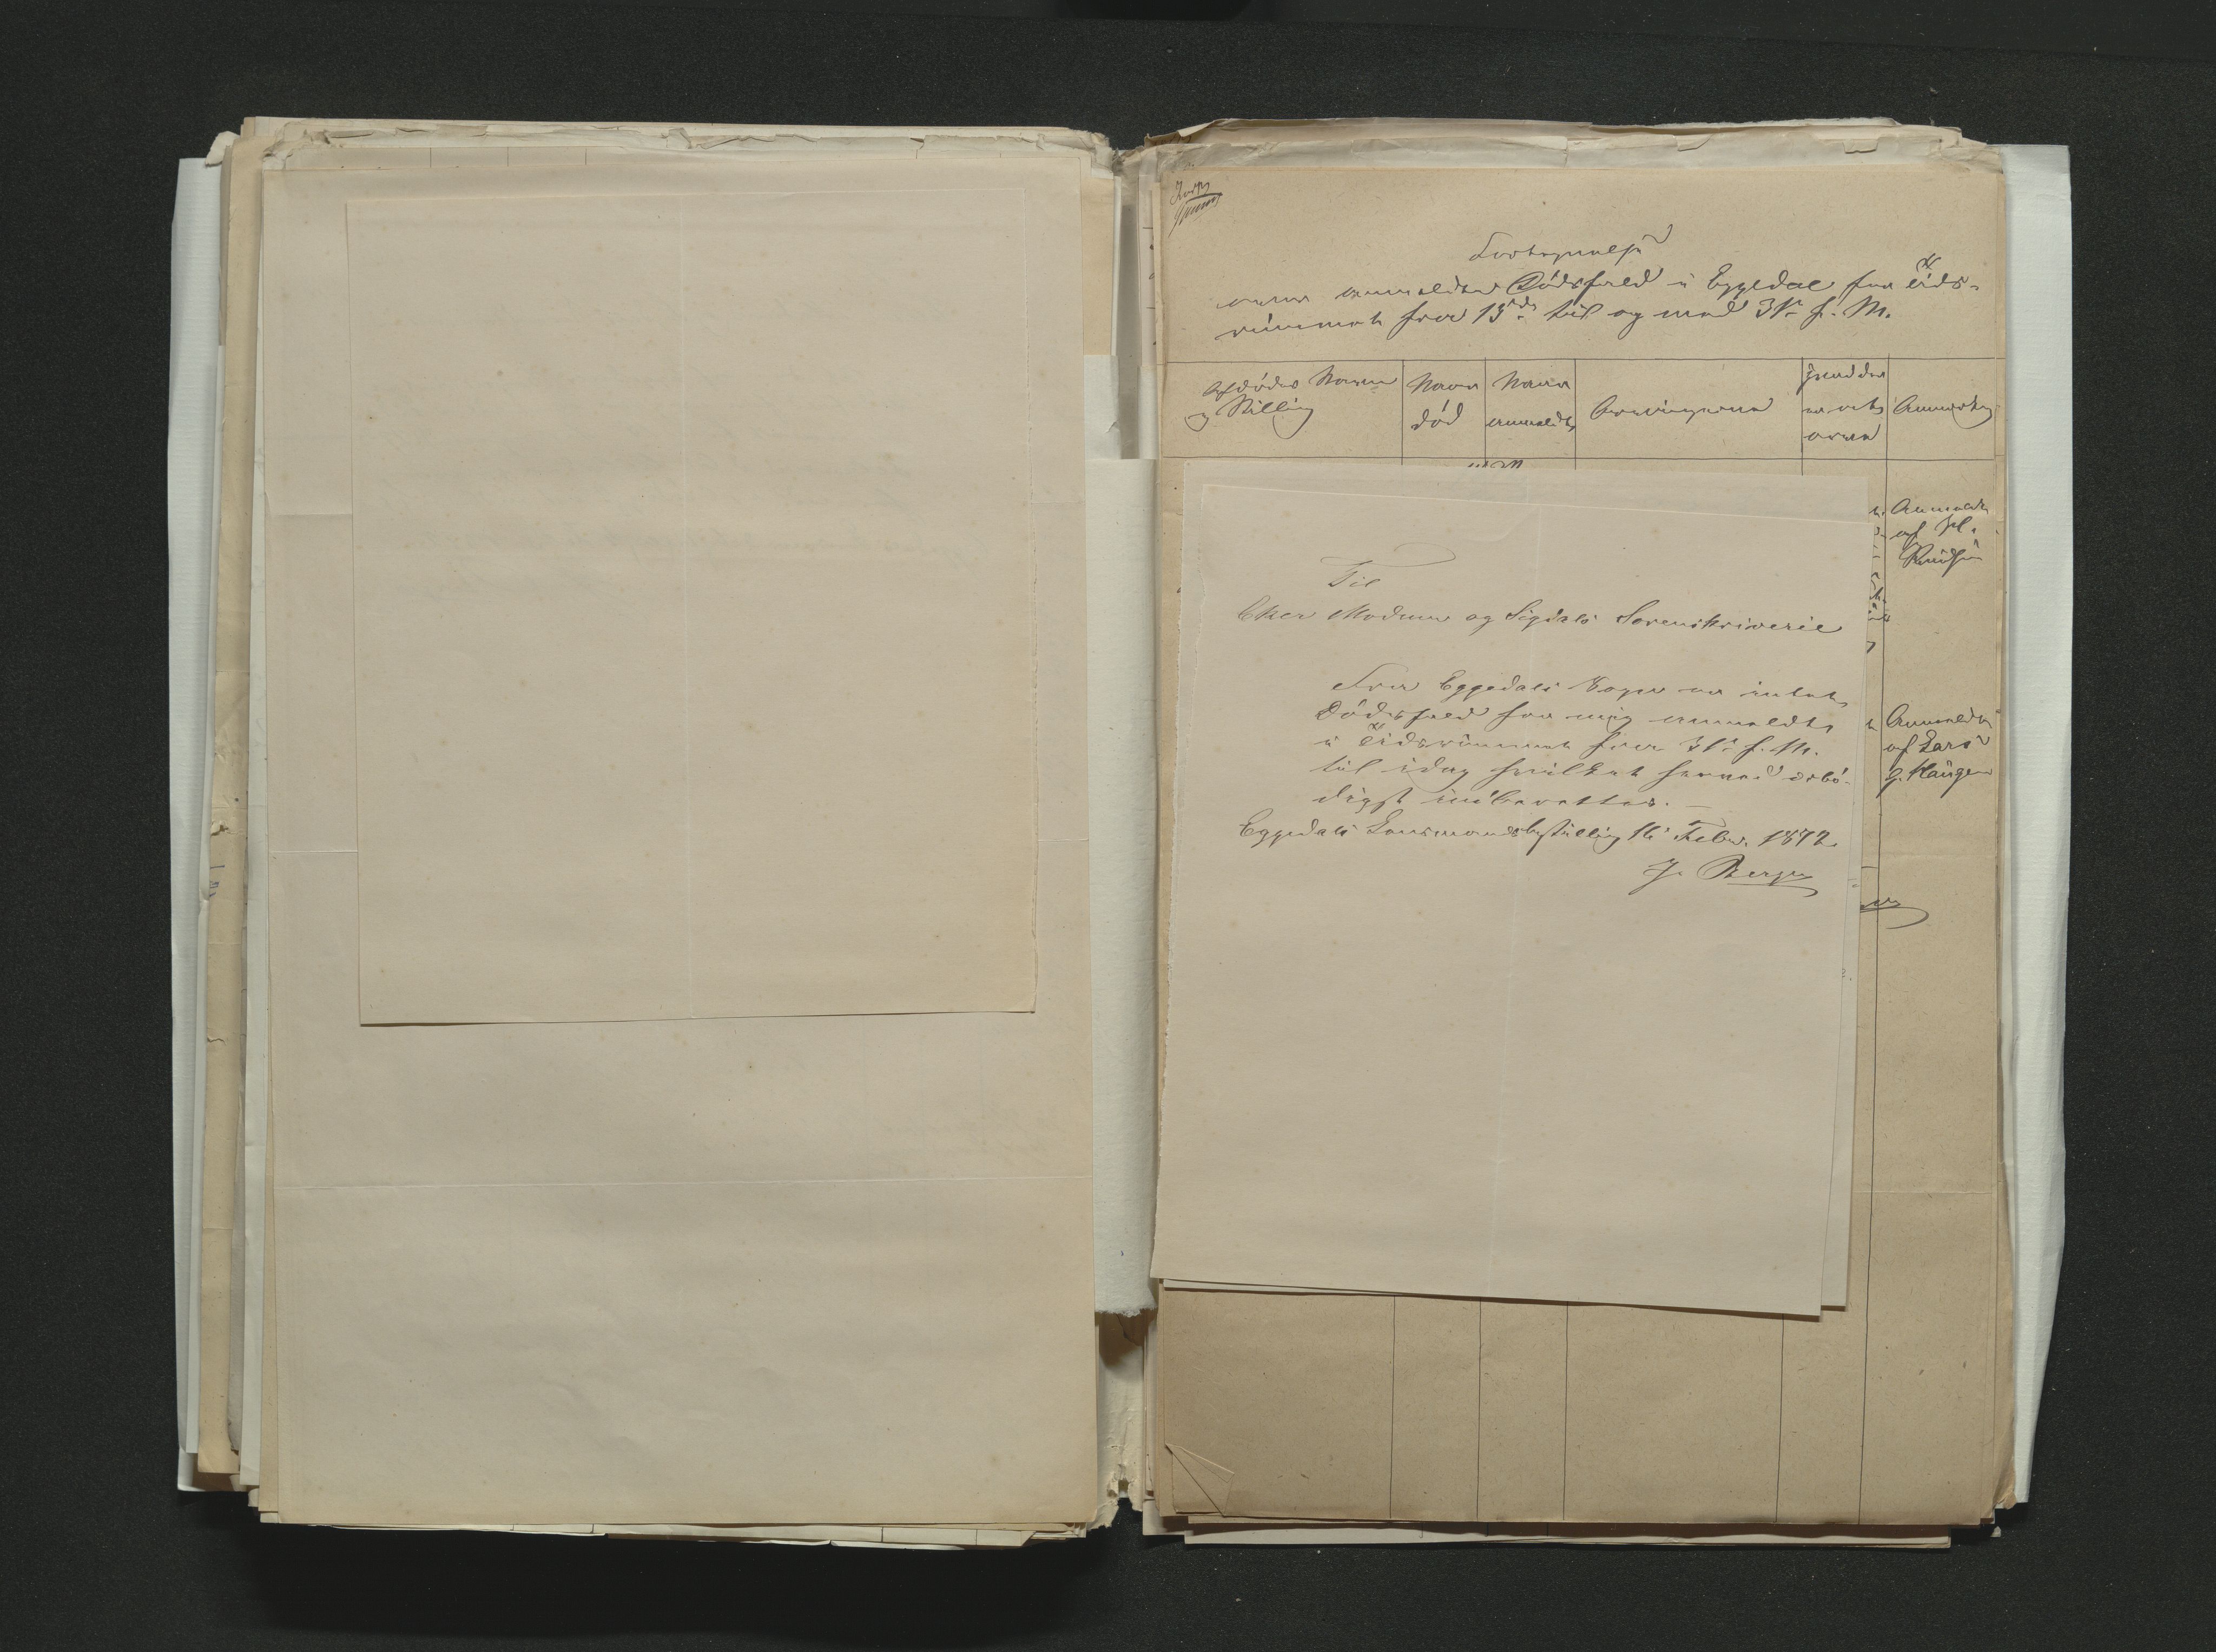 Fortegnelse
over anmeldte Dödsfald i Eggedal for Tids-
rummet fra 15de til og med 31te f. M.
Afdödes Navn
og Stilling
Naar
död
Naar
anmeldt
Arvingerne
Anmærkn
Anmeldt
af
Knudsen
Anmeldt
af Lars
Haugen
Til
Eker Modum og Sigdals Sorenskriverie
Fra Eggedals Sogn er intet
Dödsfald for mig anmeldt
i Tidsrummet fra 31te f. M.
til idag hvilket herved ærbö-
digst indberettes.
Eggedals Lensmandsbestilling 16 Febr. 1872.
J. Berge